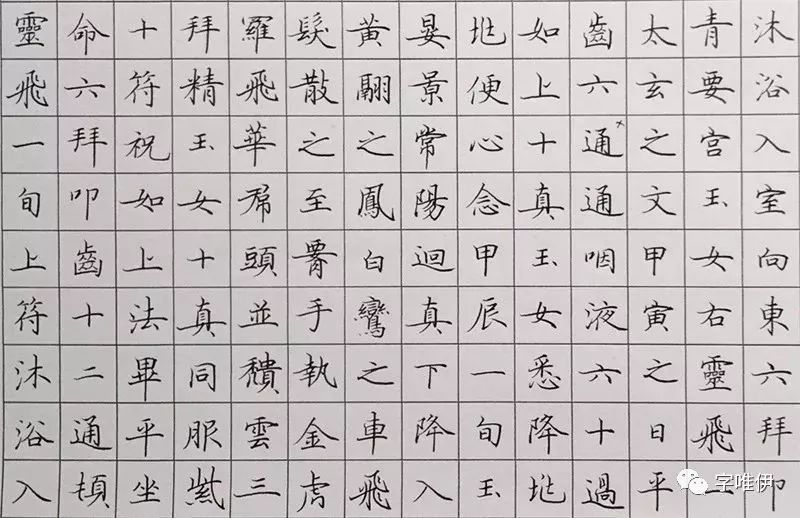 沐浴入室向東六拜叩
青要宮玉女右靈飛
太玄之文甲寅之日平
齒六通通咽液六十過
如上十真玉女悉降地
地便心念甲辰一旬玉
晏景常陽迴真下降入
黃翮之鳳白鸞之車飛
髮散之至腰手執金虎
羅飛華帬頭並穨雲三
拜精玉女十真同服紫
十符祝如上法畢平坐
命六拜叩齒十二通頓
靈飛一旬上符沐浴入
字唯伊